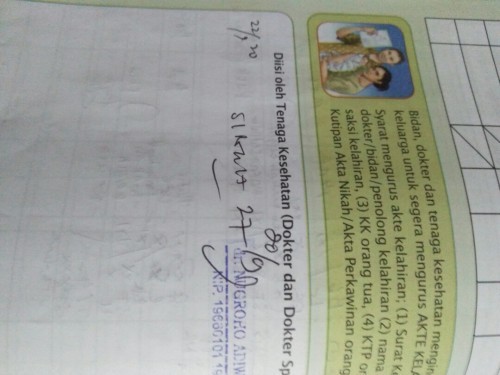 Bidan, dokter dan tenaga kesehatan mengin
keluarga untuk segera mengurus AKTE KELA
Syarat mengurus akte kelahiran; (1) Surat K
dokter/bidan/penolong kelahiran (2) nama
saksi kelahiran, (3) KK orang tua, (4) KTP or
Kutipan Akta Nikah/Akta Perkawinan orang
Diisi oleh Tenaga Kesehatan (Dokter dan Dokter Sp
NUGROHO
NIP. 19680101 19